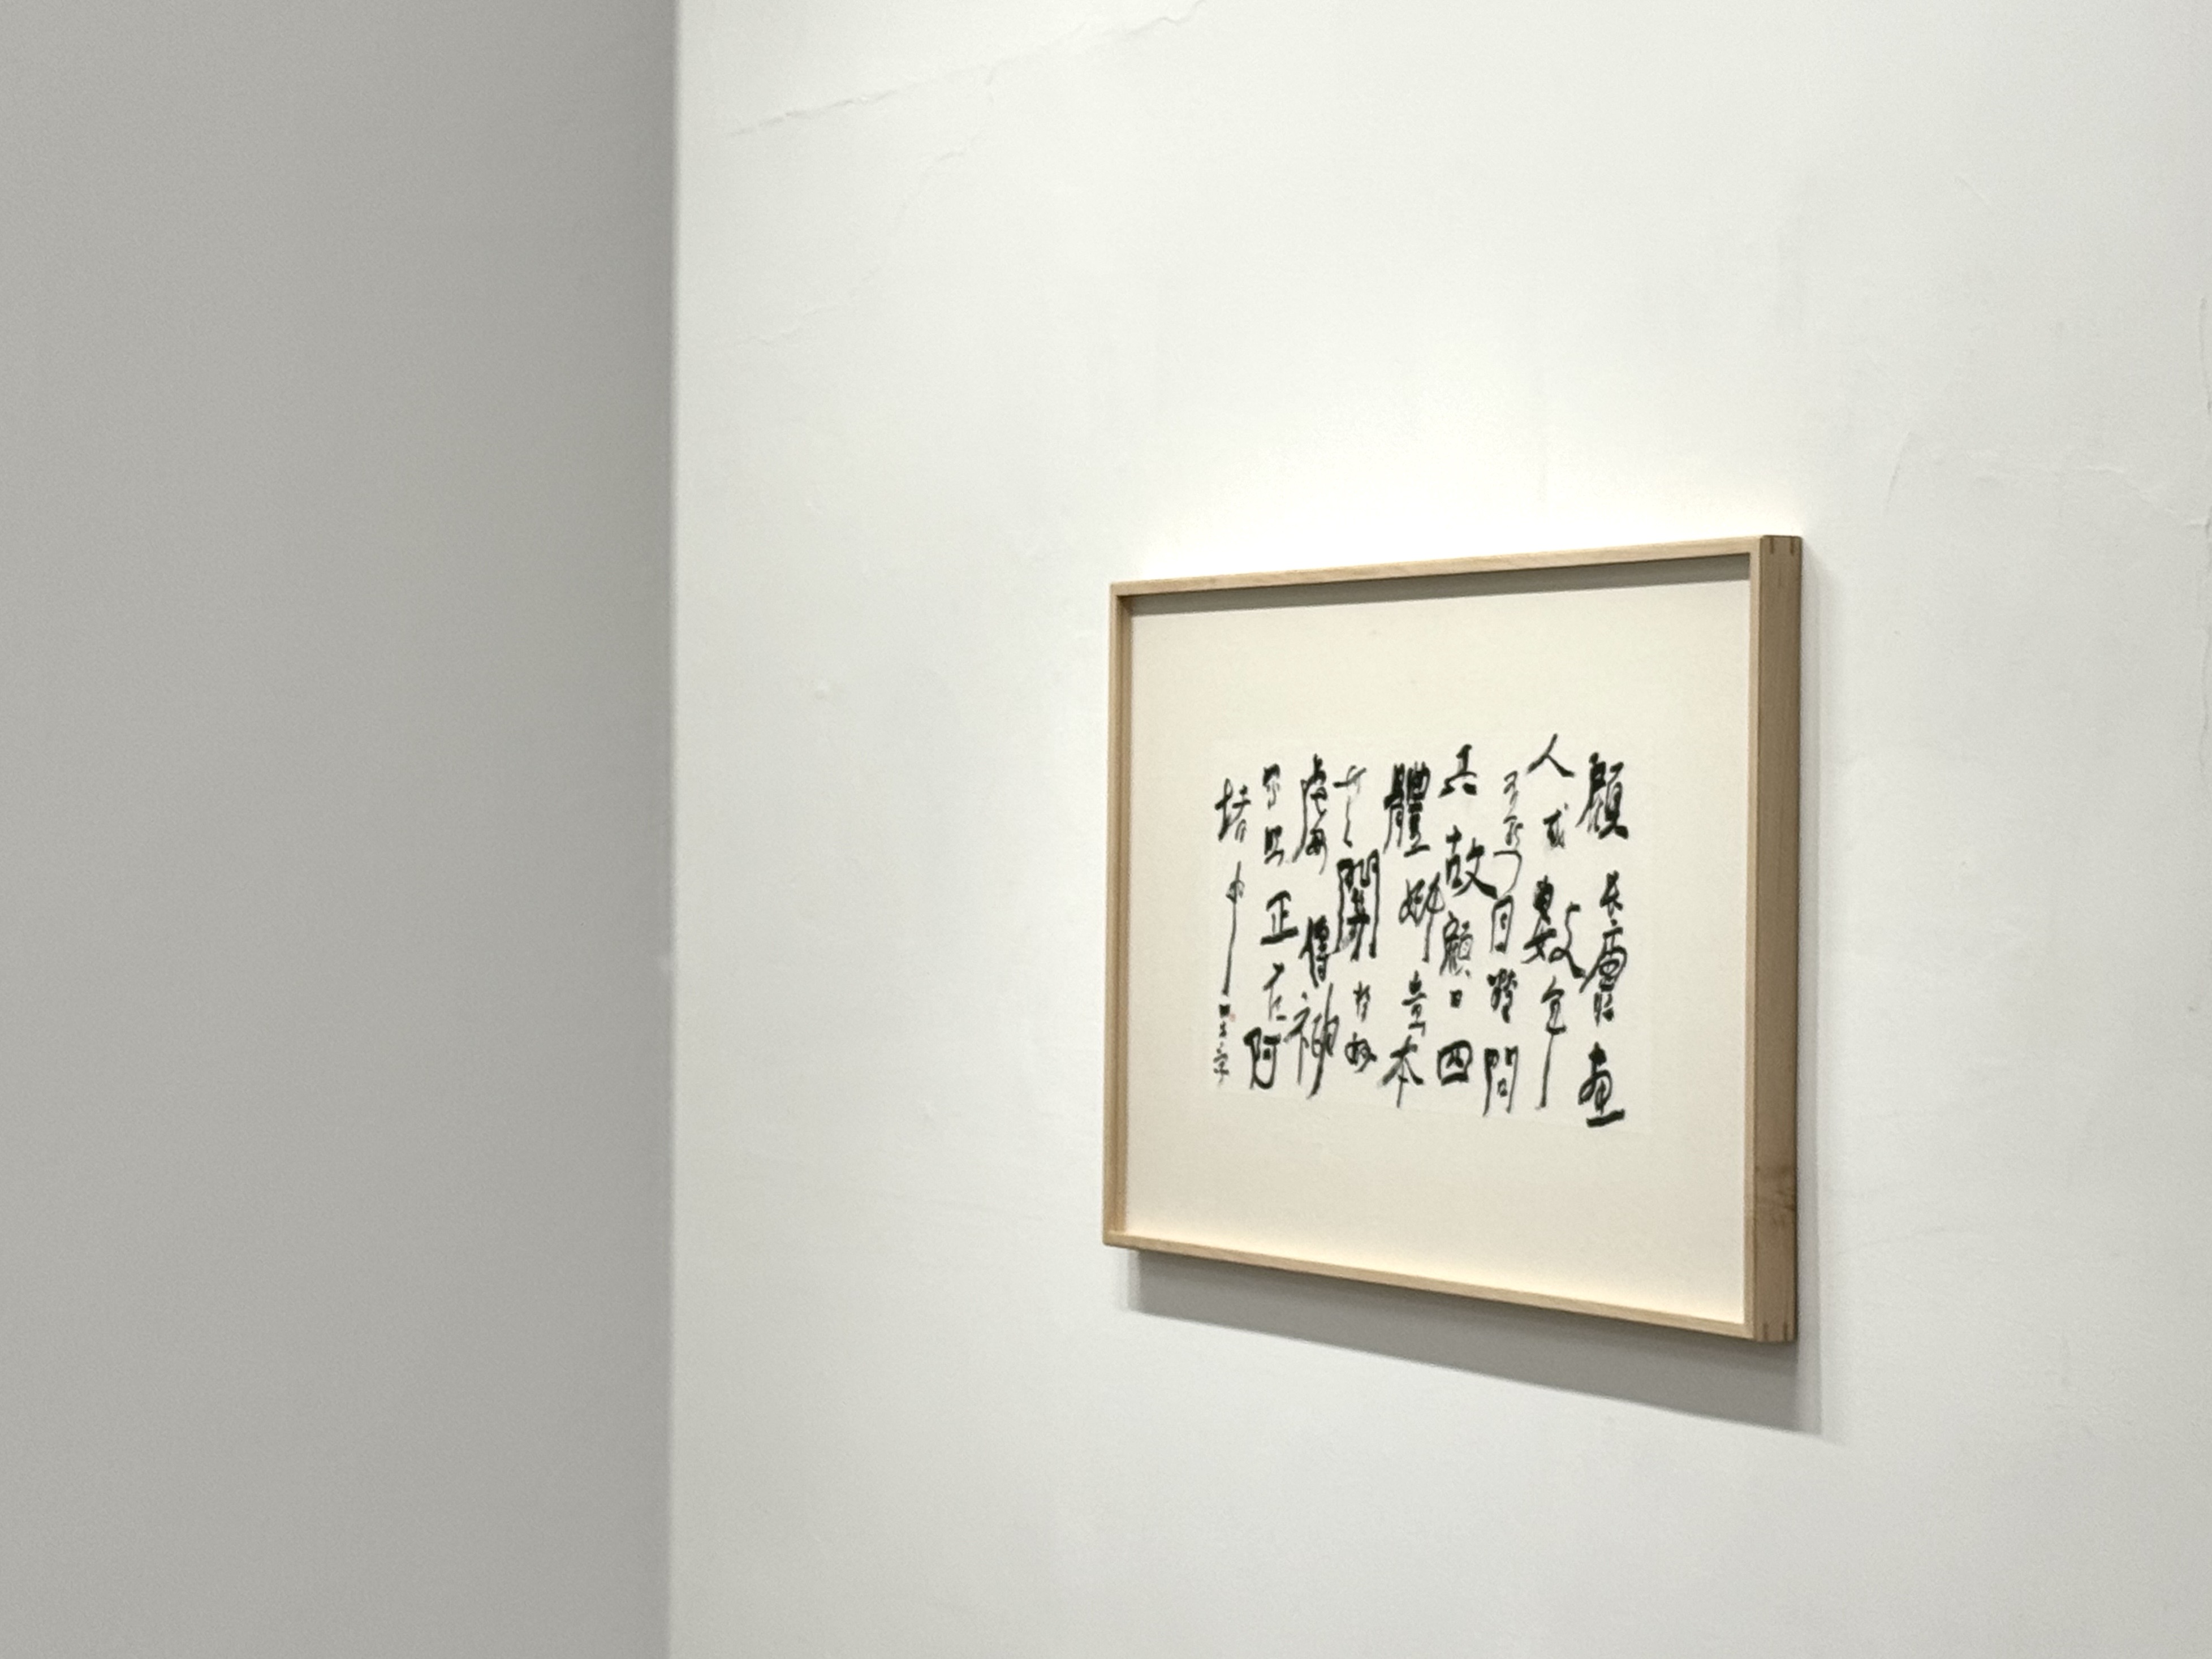 顧長康畫
人或數年
不點目睛問
其故顧曰四
體妍蚩本
無關於妙
處傳神
寫照正在阿
堵中